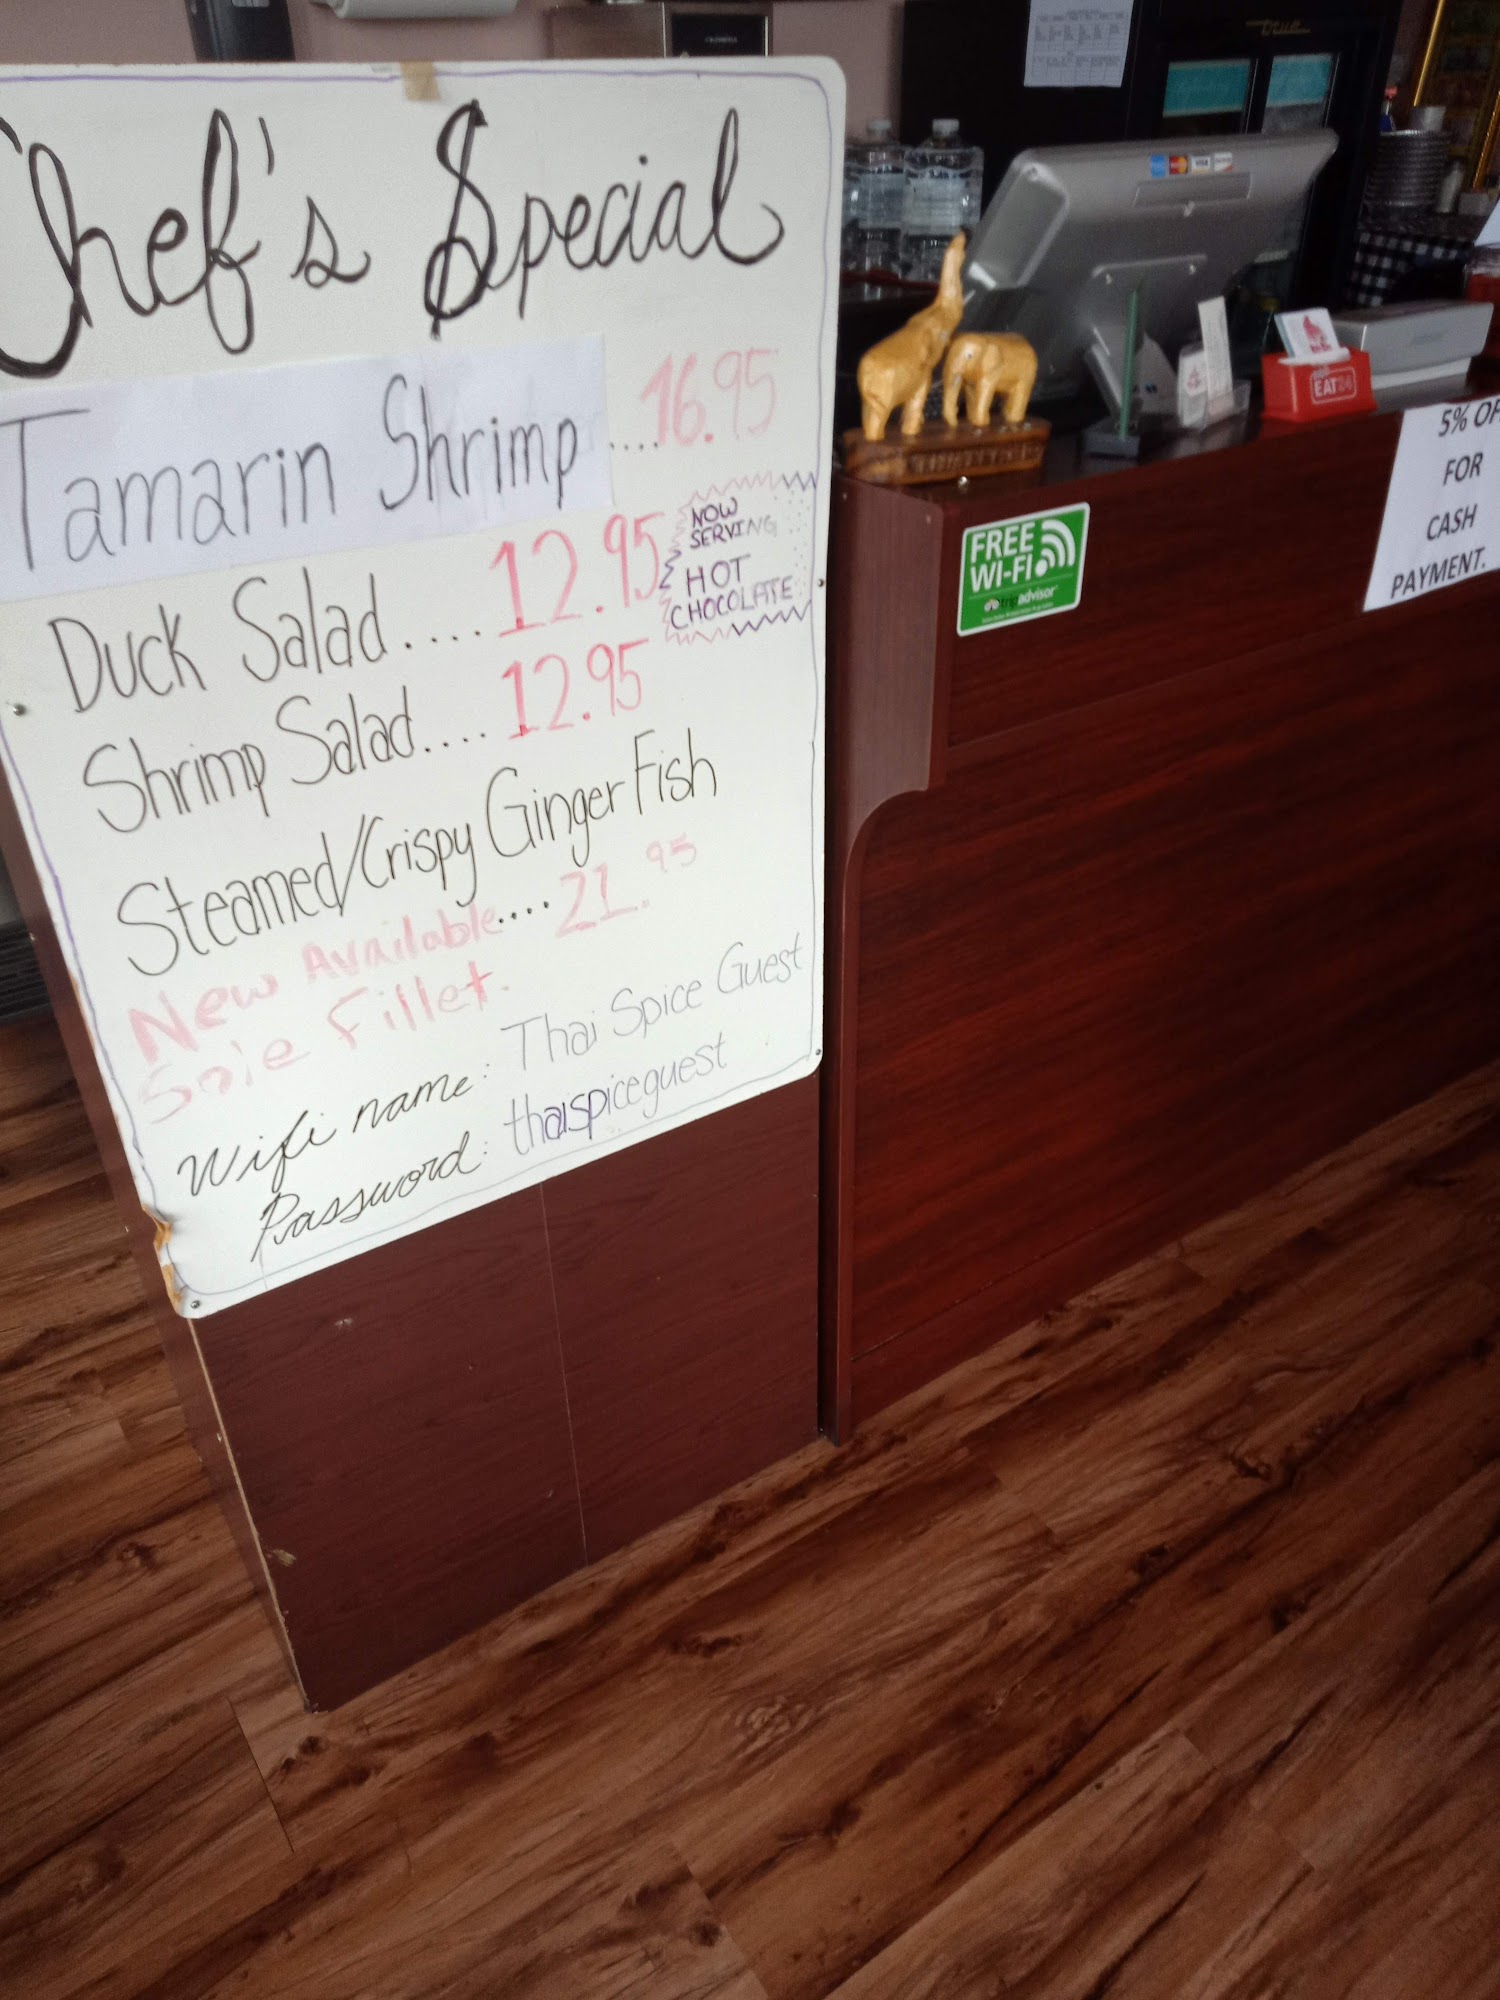 Chef's Special
Tamarin Shrimp....16.95
Duck Salad....12.95
NOW
SERVING
HOT
CHOCOLATE
Shrimp Salad....12.95
Steamed/Crispy Ginger Fish
New Available....21.95
Sole Fillet.
Wifi name: Thai Spice Guest
Password: thaispiceguest
FREE
WI-FI
tripadvisor
VISA
EAT24
5% OF
FOR
CASH
PAYMENT.